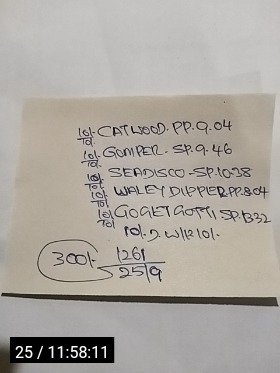 10/- CATWOOD. PP. 9.04
10/-
10/- GOMPER - SP. 9.46
10/-
10/- SEADISCO - SP. 10.38
10/-
10/- WALEY DIPPER. PP. 8.04
10/-
10/- GOGET GOTTI SP.
10/-
10/-
300/- 1261
2519
25 / 11:58:11